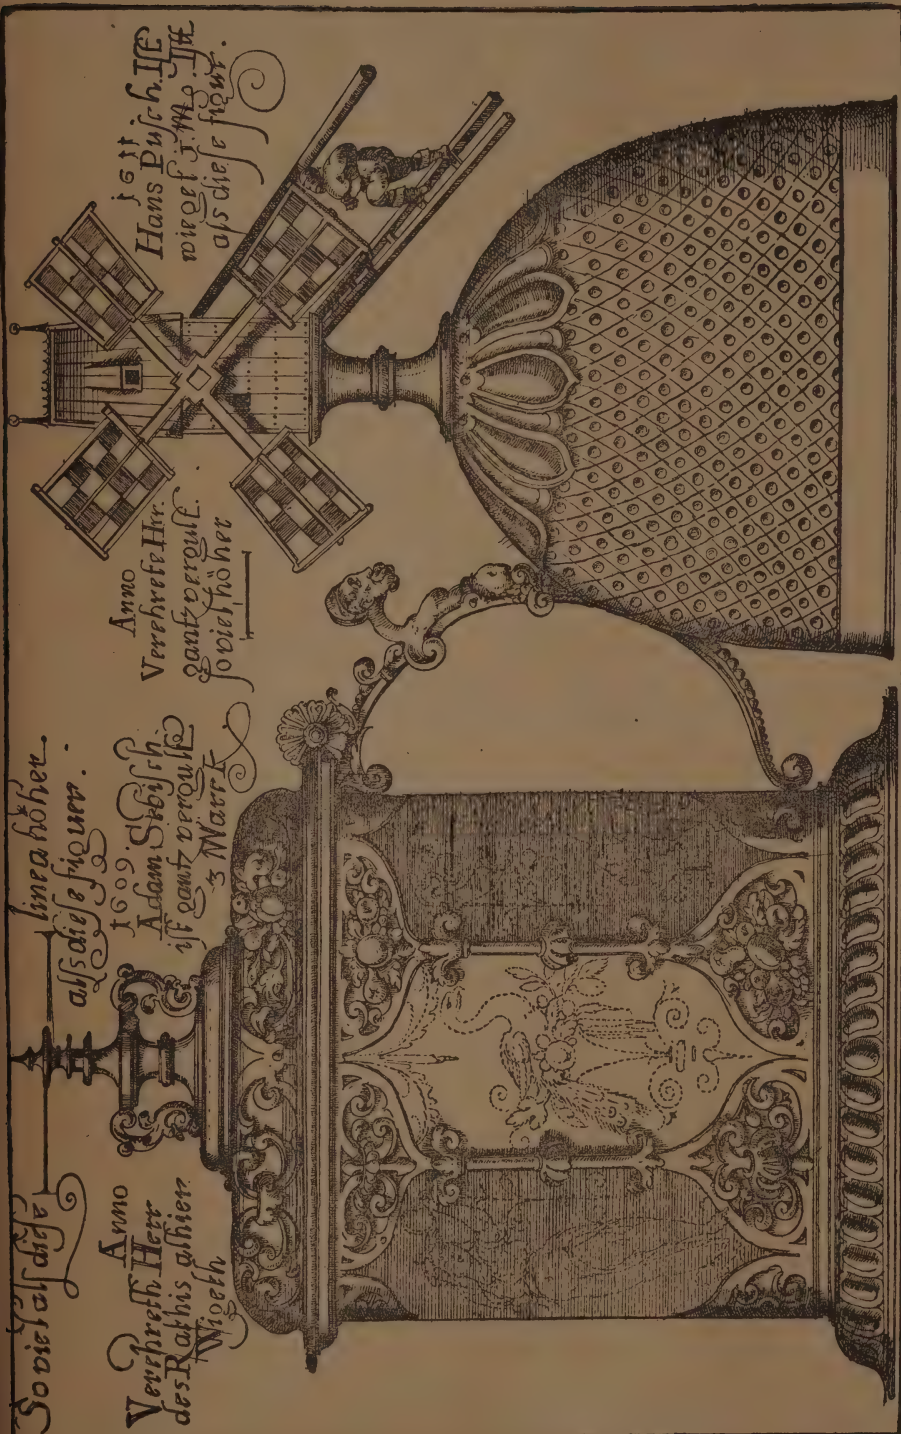 Soviel alß diese linea höher.
alß diese figurn.
Anno 1609
Verehreth Herr Adam Sebisch.
des Rathis alhier. ist gantz vergult
Wigeth 3 Marck
Anno 1611
Verehrete Hrr. Hans Pusch. Ist
gantz vergult. wiget
soviel höher als diese figur.